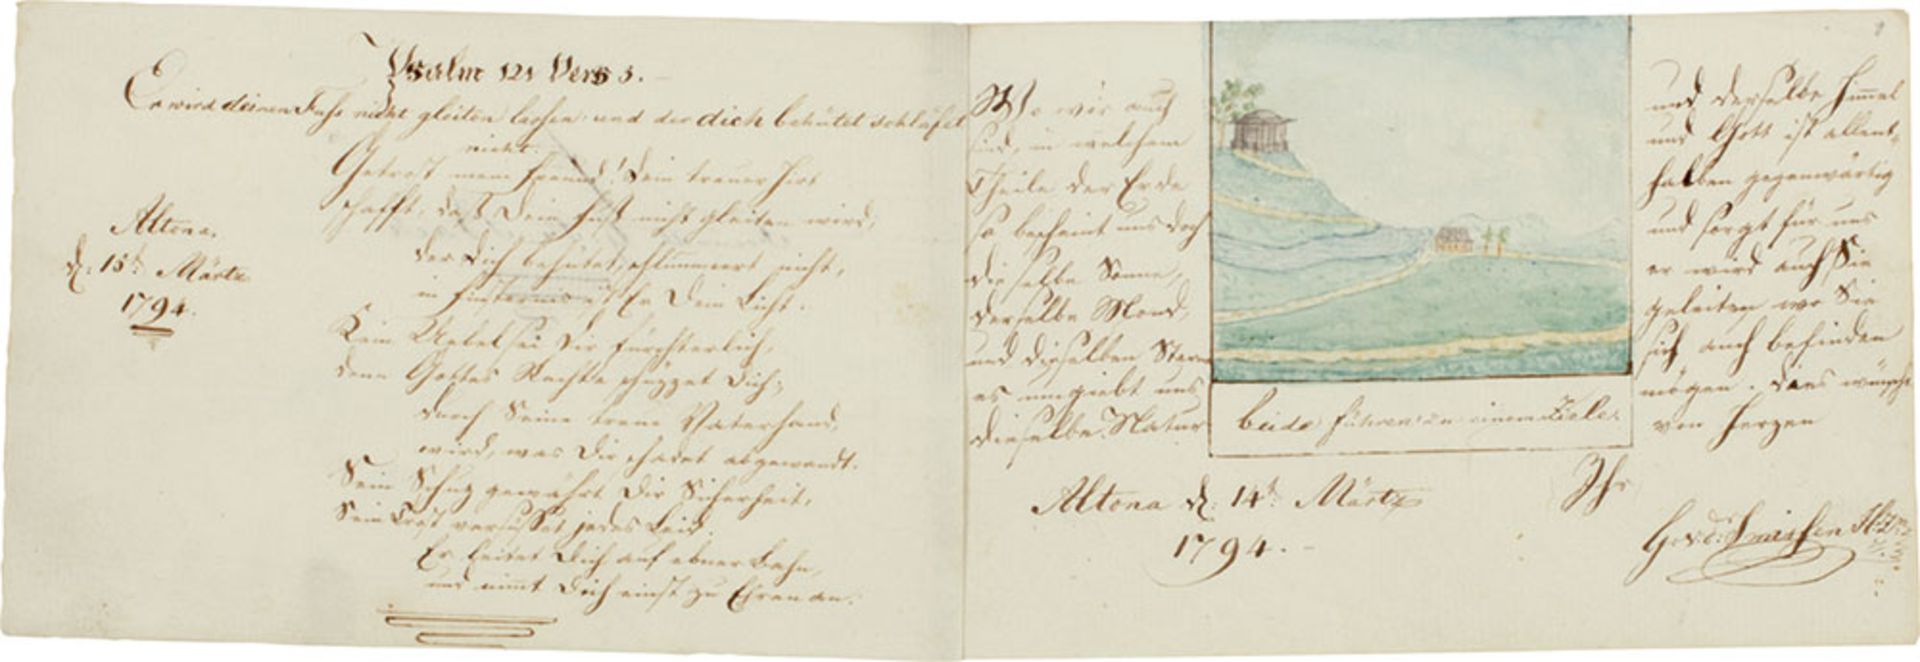 Psalm 121 Vers 3.
Er wird deinen Fuhs nicht gleiten laßen: und der dich behütet schläfet
nicht.
Getrost mein Freund! Dein treuer Hirt
schafft, daß Dein Fuß nicht gleiten wird,
der Dich behütet, schlummert nicht,
in Finsternis ist Er Dein Licht.
Kein Uebel sei Dir fürchterlich,
denn Gottes Rechte schüzzet Dich;
durch Seine treue Vaterhand,
wird, was Dir schadet abgewandt.
Sein Schuz gewährt Dir Sicherheit,
Sein Trost versüßet jedes Leid.
Er leitet Dich auf ebner Bahn,
und nimt Dich einst zu Ehren an.
Altona.
d. 15t. Märtz
1794.
Wo wir auch
sind, in welchem
Theile der Erde
so bescheint uns doch
dieselbe Sonne,
derselbe Mond,
und dieselben Stern
es umgiebt uns
dieselbe Natur
beide führen zu einem Ziele.
und derselbe Himmel
und Gott ist allent-
halben gegenwärtig
und sorgt für uns
er wird auch Sie
geleiten wo Sie
sich auch befinden
mögen. dies wünscht
von Herzen
Altona d. 14t. Märtz
1794.
Ihr